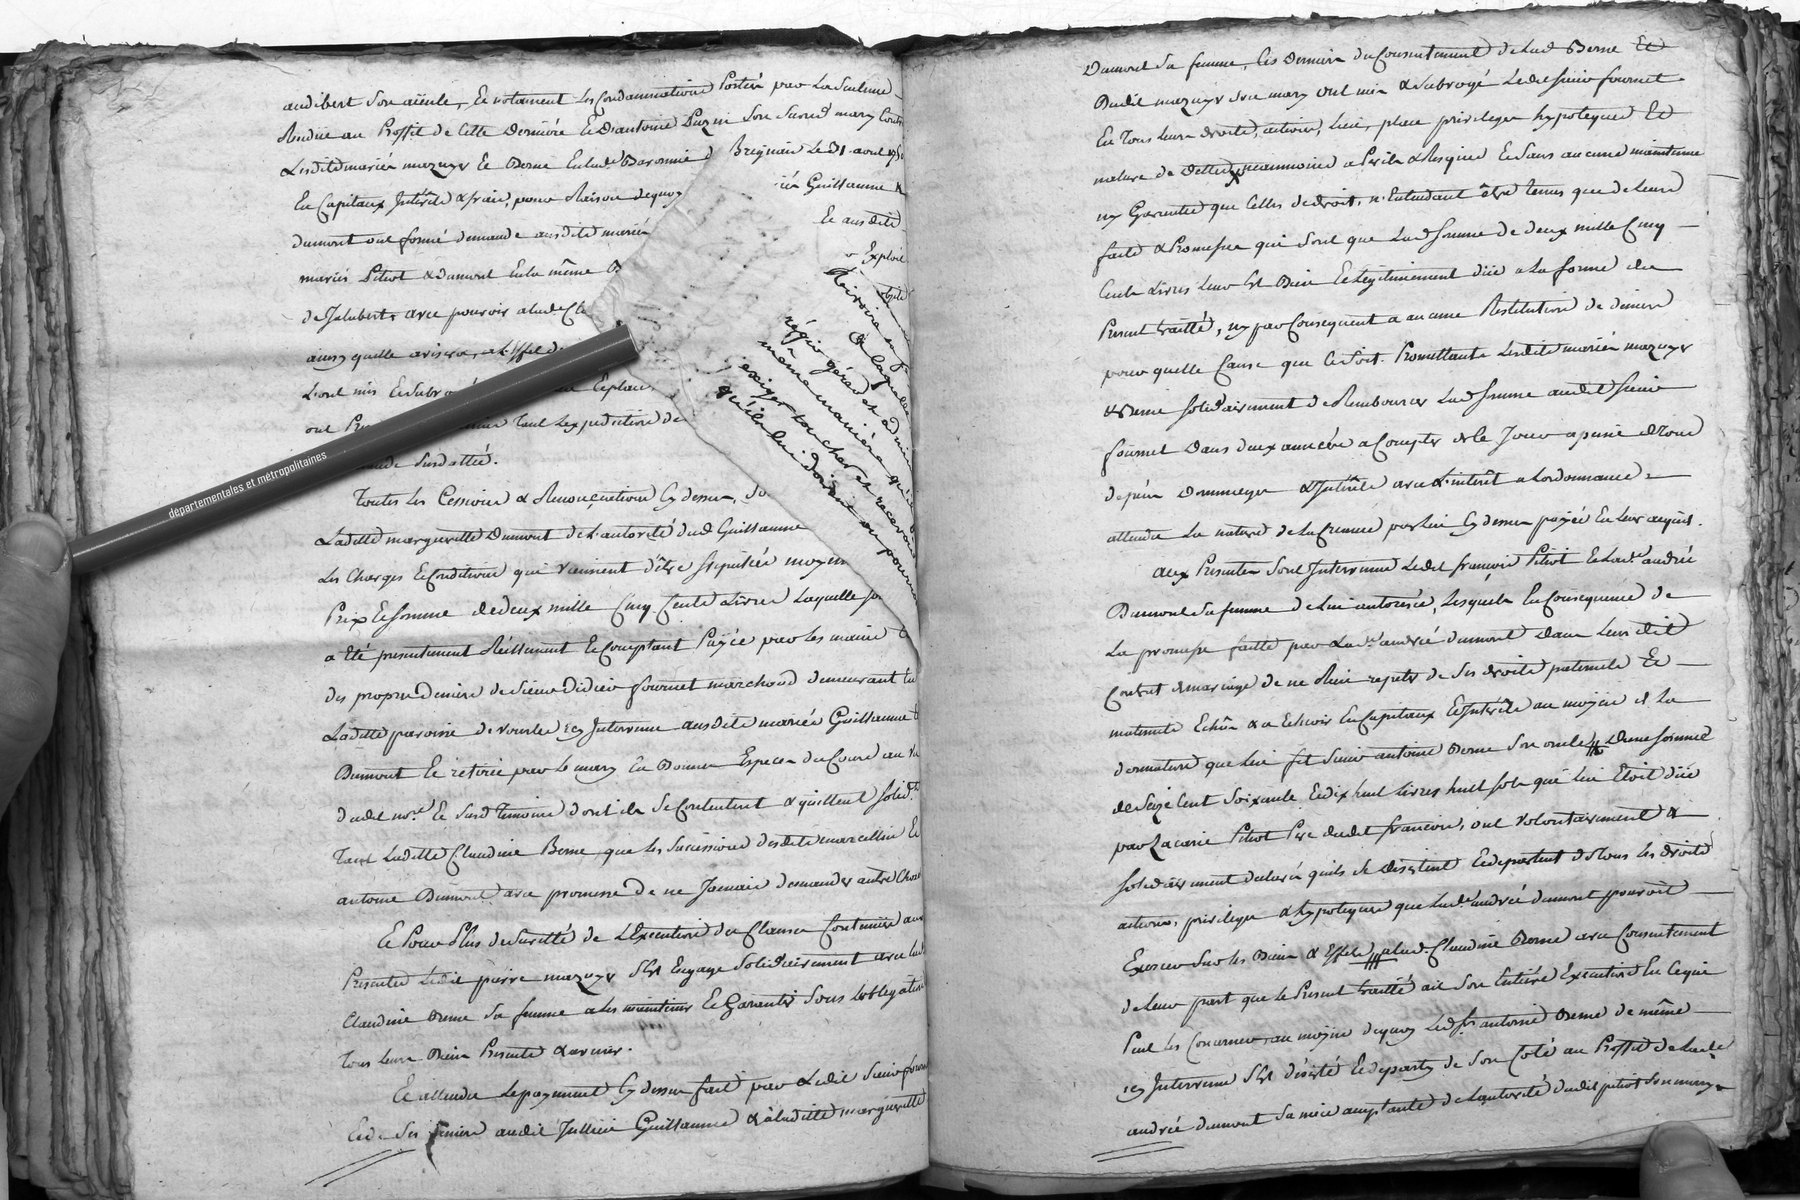 audibert son aieule, Et notament les Condamnations Portées par la Sentence
Rendue au Proffit de Cette Derniere Et D'antoine Puzin Son Second mary Contre
Lesdits mariés mazuyer Et Berne En la de Baronnie d Brignais Le 31 avril
En Capitaux Interets & frais, pour Raison dequoy iés Guillaume &
dumont ont formé demande ausdits mariés Et ausdits
mariés Pitiot & dumont En la même Exploit
de Jalabert, avec pouvoir a lade Cl
ainsy quelle avisera, a L'effet d
Lont mis & Subro Et place
ont tant L'expedition de
Susdattée.
régir gérer et
meme maniere qu'
exiger toucher et recevoir
qu'ils lui doivent ou pourro
departementales et métropolitaines
Toutes les Cessions & Renonciations Cy dessus, so
Laditte margueritte Dumont de L'autorité dud Guillaume
Les Charges & Conditions qui viennent d'être stipulées moyen
Prix Et somme de deux mille Cinq Cents Livres Laquelle so
a Eté presentement Réellement & Comptant Payée par les mains &
des propres deniers de Sieur Didier fournet marchand demeurant En
Laditte paroisse de vourles icy Intervenu ausdits mariés Guillaume &
Dumont Et retirée par le mary En Bonnes Especes du Cours au vu
dudit nore Et Susd Temoins dont ils Se Contentent & quittent solidt
Tant Laditte Claudine Berne que les Successions desdits marcellin Et
antoine Dumont avec promesse de ne Jamais demander autre Chose
Et Pour Plus de Sureté de L'Execution des Clauses Contenues aux
Presentes Ledit pierre mazuyer S'est Engagé Solidairement avec lad
Claudine Berne Sa femme a les maintenir Et Garantir Sous L'obligation
Tous leurs Biens Presents & avenir.
Et attendu Le payement Cy dessus fait par Ledit Sieur fournet
Et de Ses deniers audit Jullien Guillaume & a laditte margueritte
Dumont Sa femme, Ces Derniers du Consentement de Lad Berne Et
Dudit mazuyer Son mary ont mis & Subrogé Ledit sieur fournet
En Tous leurs droits, actions, Lieu, place privileges hypoteques Et
nature de dettes neanmoins a Perils & Risques Et Sans aucune maintenue
ny Garantie que Celles de droit, n'Entendant être tenus que de Leurs
faits & Promesses qui sont que Lad somme de deux mille Cinq
Cents Livres Leur Est Bien Et Légitimement düe a La forme du
Present traitté, ny par Consequent a aucune Restitution de deniers
pour quelle Cause que Ce Soit. Promettants Lesdits mariés mazuyer
& Berne solidairement de Rembourcer Lad somme audit Sieur
fournet Dans deux années a Compter de Ce Jour a peine de Tous
depens Dommages & Interets avec L'interêt a Lordonnance
attendu La nature de la Creance par lui Cy dessus payée En leur acquit.
aux Presentes Sont Intervenus Ledit françois Pitiot Et Lade andrée
Dumont Sa femme de lui autorisée, Lesquels En Consequence de
La promesse faitte par Lade andrée dumont Dans Leurs dit
Contrat de mariage de ne Rien repeter de Ses droits paternels Et
maternels Echûs & a Echeoir En Capitaux & Interets au moyen de La
donnation que lui fit Sieur antoine Berne Son oncle # D'une somme
de Seize Cent Soixante Et dix huit Livres huit Sols qui lui Etoit düe
par Zacarie Pitiot Pere dudit françois, ont volontairement &
solidairement declaré quils Se desistent Et departent de tous les droits
actions, privileges & hypoteques que Lade andrée dumont pouvoit
Exercer Sur les Biens & Effets # a lad. Claudine Berne avec Consentement
de leur part que le Present traitté ait Son Entiere Execution En Ce qui
Peut les Concerner, au moyen dequoy Led sr antoine Berne de même
icy Intervenu S'est désisté Et departy de Son Coté au Proffit de Lade
andrée dumont Sa niece acceptante de L'autorité dudit pitiot Son mary